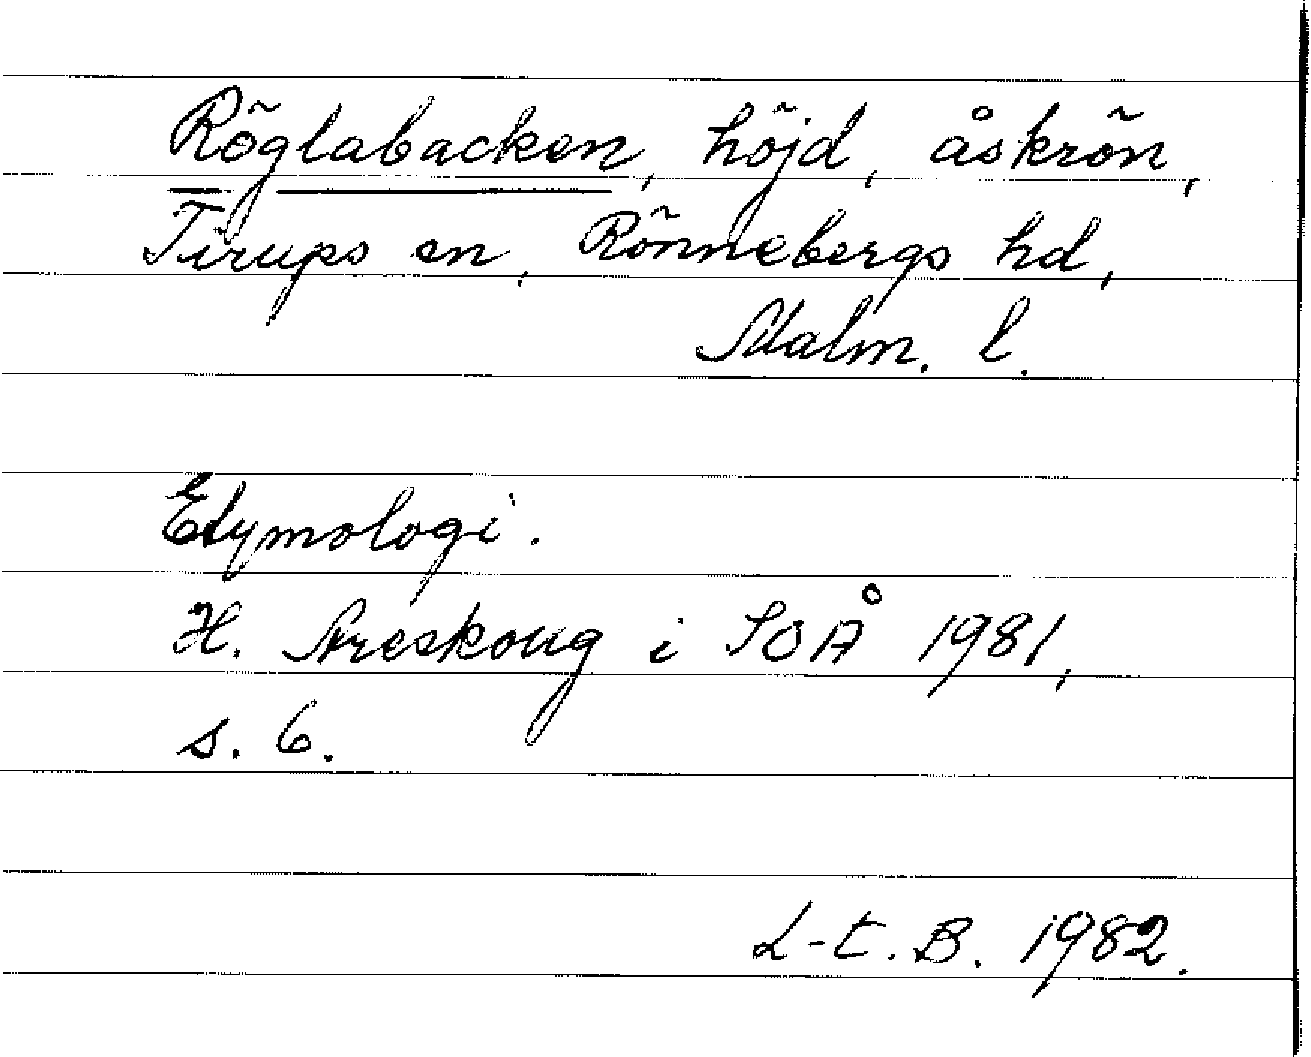 Röglabacken, höjd, åskrön,
Tirups sn, Rönnebergs hd,
Malm. l.
Etymologi.
H. Areskoug i SOÅ 1981,
s. 6.
L-t. B. 1982.